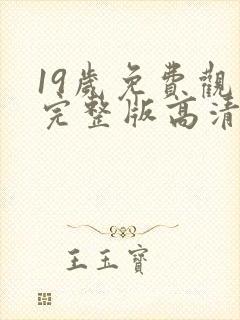 19歲免費觀
完整版高清
王玉寶